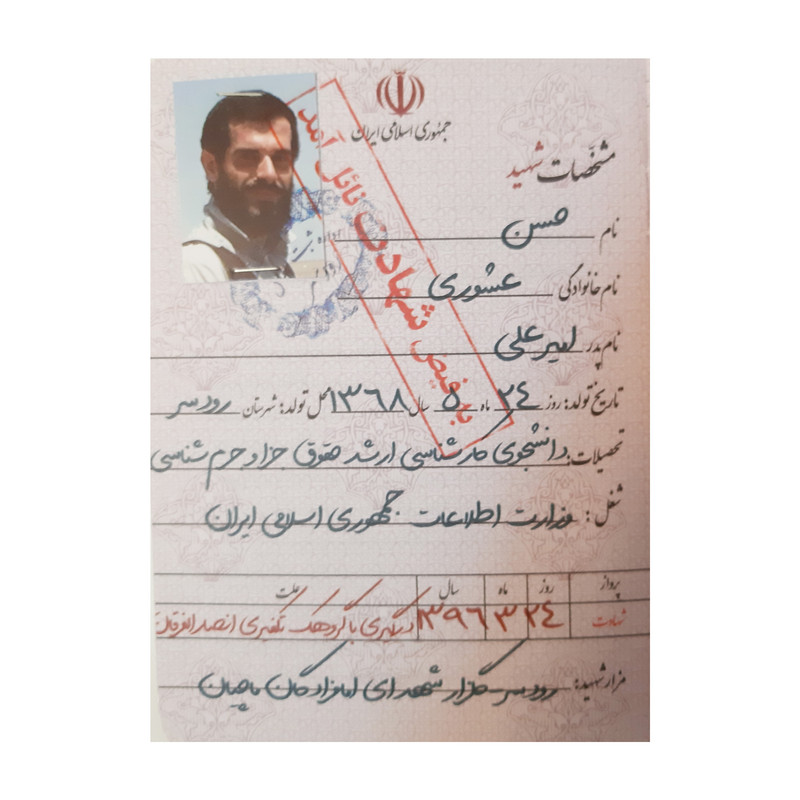 جمهوری اسلامی ایران
مشخصات شهید
به فیض شهادت نائل آمد
نام حسن
نام خانوادگی عشوری
نام پدر امیرعلی
تاریخ تولد: روز ۲۴ ماه ۵ سال ۱۳۶۸ محل تولد: شهرستان رودسر
تحصیلات: دانشجوی کارشناسی ارشد حقوق جزا و جرم شناسی
شغل: وزارت اطلاعات جمهوری اسلامی ایران
پرواز روز ماه سال علت
شهادت ۲۴ ۳ ۱۳۹۶ درگیری با گروهک تکفیری انصار الفرقان
مزار شهید: رودسر - گلزار شهدای امامزادگان ماچیان